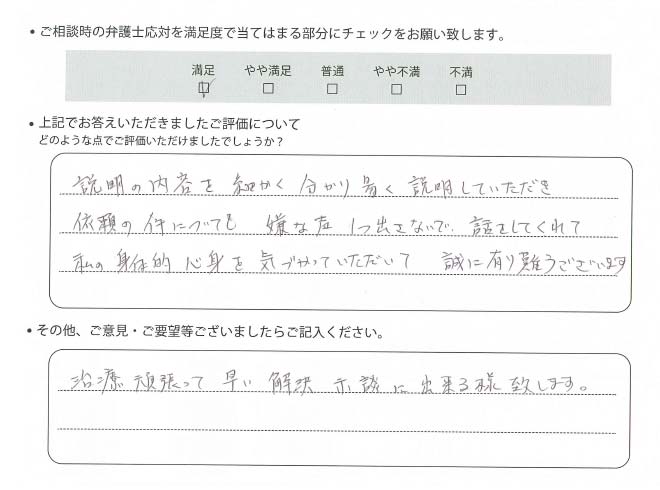 • ご相談時の弁護士応対を満足度で当てはまる部分にチェックをお願い致します。
満足 やや満足 普通 やや不満 不満
• 上記でお答えいただきましたご評価について
どのような点でご評価いただけましたでしょうか？
説明の内容を細かく分かり易く説明していただき
依頼の件についても 嫌な声1つ出さないで、話をしてくれて
私の身体的 心身を気づかっていただいて 誠に有り難うございます
• その他、ご意見・ご要望等ございましたらご記入ください。
治療頑張って早い解決示談に出来る様致します。